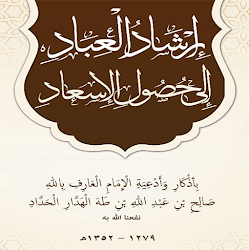 إِرْشَادُ الْعِبَادِ
إِلَى حُصُولِ الْإِسْعَادِ
بِأَذْكَارِ وَأَدْعِيَةِ الْإِمَامِ الْعَارِفِ بِاللهِ
صَالِحِ بْنِ عَبْدِ اللهِ بْنِ طَهَ الْهَدَّارِ الْحَدَّادِ
نفعنا الله به
١٢٧٩ - ١٣٥٢هـ